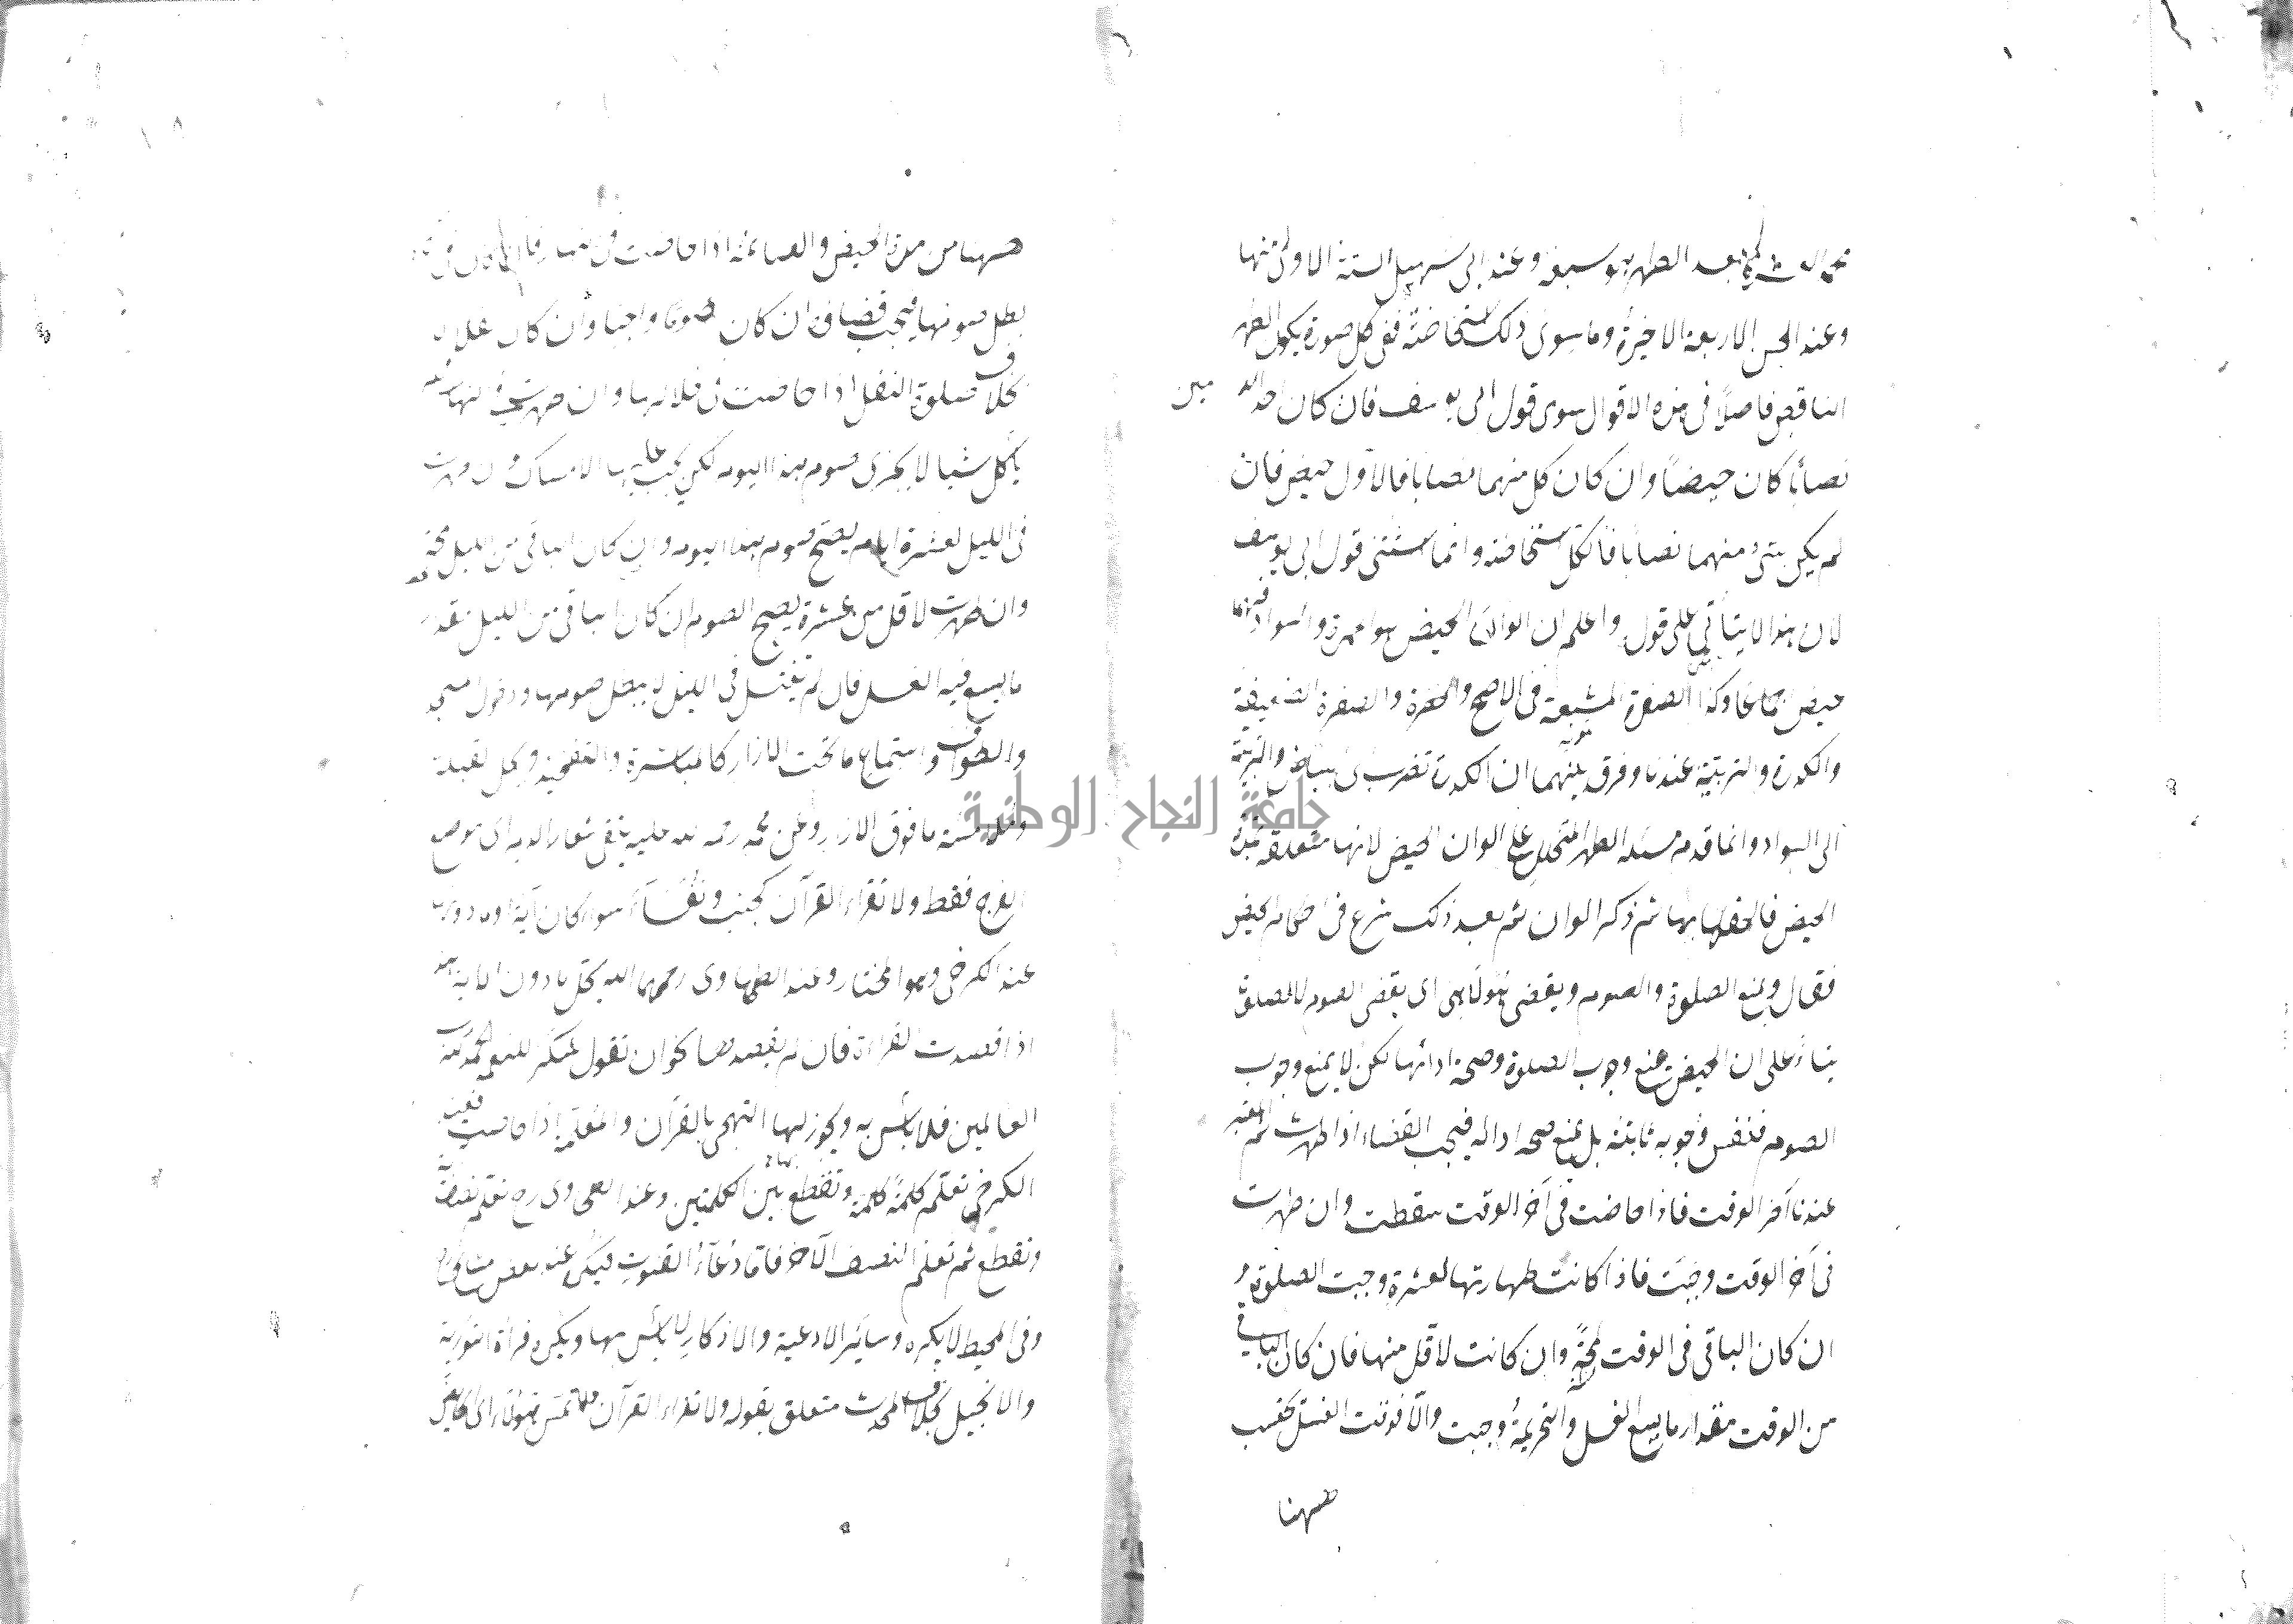 بعد الطهر هو سبعة وعند ابى سهيل الستة الاولى منها
وعند الحسن الاربعة الاخيرة وما سوى ذلك استحاضة ففى كل صورة يكون الطهر
الناقص فاصلا فى هذه الاقوال سوى قول ابى يوسف فان كان احد الدمين
نصابا كان حيضا وان كان كل منهما نصابا فالاول حيض فان
لم يكن شئ منهما نصابا فالكل استحاضة وانما استثنى قول ابى يوسف
لان هذا لا يتأتى على قوله واعلم ان الوان الحيض هو الحمرة والسواد فهما
حيض اجماعا وكذا الصفرة المشبعة فى الاصح والخضرة والصفرة الضعيفة
والكدرة والتربية عندنا وفرق بينهما ان الكدرة تضرب الى بياض والتربية
الى السواد وانما قدم مسئلة الطهر المتخلل على الوان الحيض لانها متعلقة بمدة
الحيض فالحقها بها ثم ذكر الوان ثم بعد ذلك شرع فى احكام الحيض
فقال ويمنع الصلوة والصوم ويقضى هو لا هى اى يقضى الصوم لا الصلوة
بناء على ان الحيض يمنع وجوب الصلوة وصحة ادائها لكن لا يمنع وجوب
الصوم فنفس وجوبه ثابتة بل يمنع صحة ادائه فيجب القضاء اذا طهرت ثم المعتبر
عندنا آخر الوقت فاذا حاضت فى آخر الوقت سقطت وان طهرت
فى آخر الوقت وجبت فاذا كانت طهارتها لعشرة وجبت الصلوة و
ان كان الباقى فى الوقت لمحة وان كانت لاقل منها فان كان الباقى
من الوقت مقدار ما يسع الغسل والتحريمة وجبت والا فوقت الغسل يحتسب
ههنا
ههنا من مدة الحيض والصائمة اذا حاضت فى النهار فان كان فى
بطل صومها فيجب قضاؤه ان كان صوما واجبا وان كان نفلا لا
بخلاف صلوة النفل اذا حاضت فى خلالها وان طهرت فى النهار ولم
تأكل شيئا لا يجزى صوم هذا اليوم لكن يجب عليها الامساك وان طهرت
فى الليل لعشرة ايام يصح صوم هذا اليوم وان كان الباقى من الليل لمحة
وان طهرت لاقل من عشرة يصح الصوم ان كان الباقى من الليل بقدر
ما يسع فيه الغسل فان لم تغتسل فى الليل لا يبطل صومها ودخول المسجد
والطواف واستمتاع ما تحت الازار كالمباشرة والتفخيذ ويحل القبلة
وملامسة ما فوق الازار وعن محمد رحمة الله عليه يتقى شعار الدم اى موضع
الفرج فقط ولا تقراء القرآن كجنب ونفساء سواء كان آية او ما دونها
عند الكرخى وهو المختار وعند الطحاوى رحمهما الله يحل ما دون الآية هذا
اذا قصدت القراءة فان لم يقصد نحو ان تقول شكرا للنعمة الحمد لله رب
العالمين فلا بأس به ويجوز لها التهجى بالقرآن والمعلمة اذا حاضت فعند
الكرخى تعلم كلمة كلمة وتقطع بين الكلمتين وعند الطحاوى رح تعلم نصف آية
وتقطع ثم تعلم النصف الآخر فاما دعاء القنوت فيكره عند بعض مشايخنا
وفى المحيط لا يكره وسائر الادعية والاذكار لا بأس بها ويكره قراة التورية
والانجيل بخلاف المحدث متعلق بقوله ولا تقراء القرآن ولا تمس هؤلاء اى الحائض